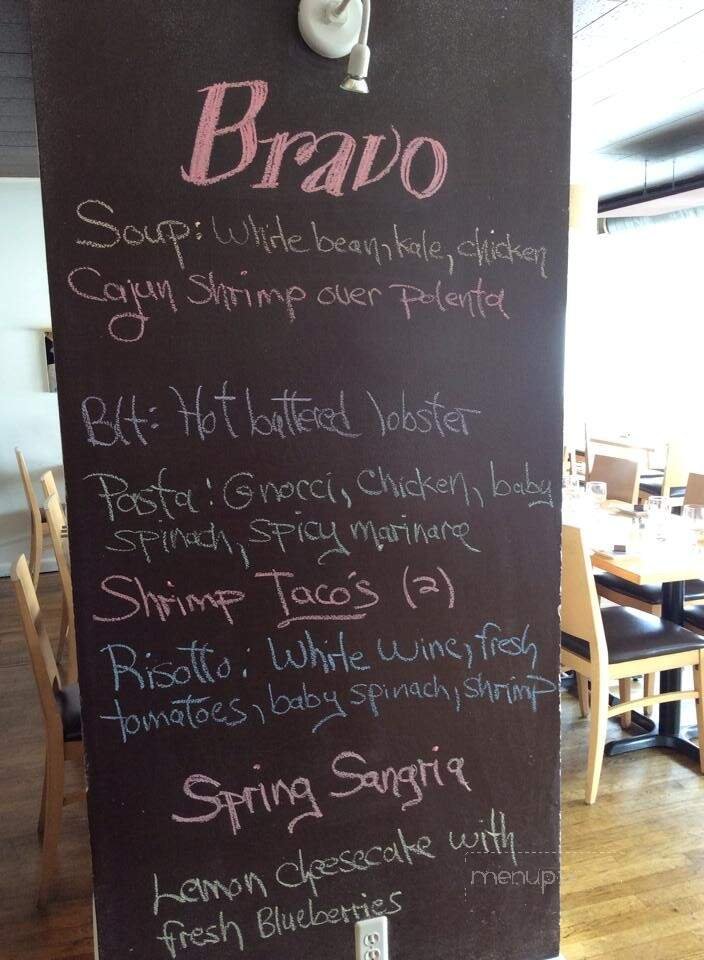 Bravo
Soup: White bean, kale, chicken
Cajun Shrimp over Polenta
Blt: Hot buttered lobster
Pasta: Gnocci, Chicken, baby
spinach, spicy marinara
Shrimp Taco's (2)
Risotto: White wine, fresh
tomatoes, baby spinach, shrimp
Spring Sangria
Lemon cheesecake with
fresh Blueberries
menup